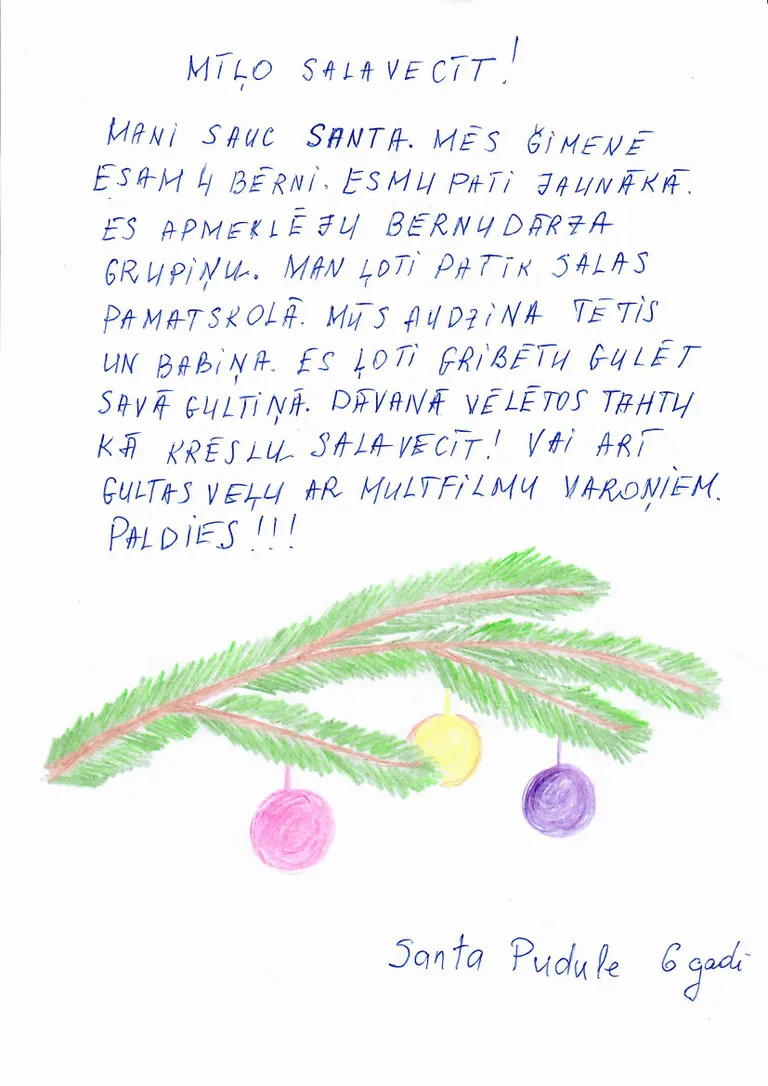 MĪĻO SALAVECĪT!
MANI SAUC SANTA. MĒS ĢIMENĒ
ESAM 4 BĒRNI. ESMU PATI JAUNĀKĀ.
ES APMEKLĒJU BĒRNUDĀRZA
GRUPIŅU. MAN ĻOTI PATĪK SALAS
PAMATSKOLĀ. MŪS AUDZINA TĒTIS
UN BABIŅA. ES ĻOTI GRIBĒTU GULĒT
SAVĀ GULTIŅĀ. DĀVANĀ VĒLĒTOS TAHTU
KĀ KRĒSLU SALAVECĪT! VAI ARĪ
GULTAS VEĻU AR MULTFILMU VAROŅIEM.
PALDIES!!!
Santa Pudule 6 gadi